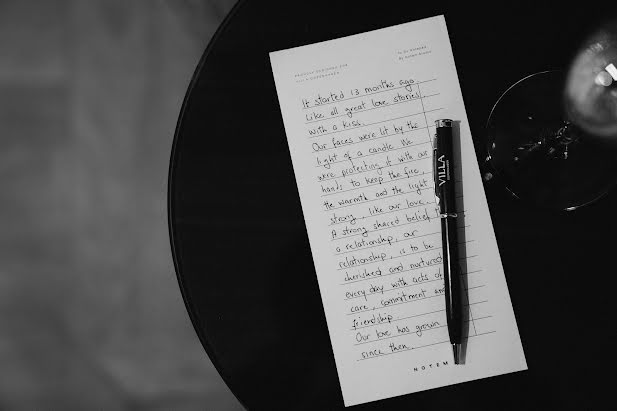 PROUDLY DESIGNED FOR
It started 13 months ago.
Like all great love stories.
With a kiss.
Our faces were lit by the
light of a candle. We
were protecting it with our
hands to keep the fire,
the warmth and the light
strong, like our love.
A strong shared belief
a relationship, our
relationship, is to be
cherished and nurtured
every day with acts of
care, commitment and
friendship.
Our love has grown
since then.
NOTEM
VILLA